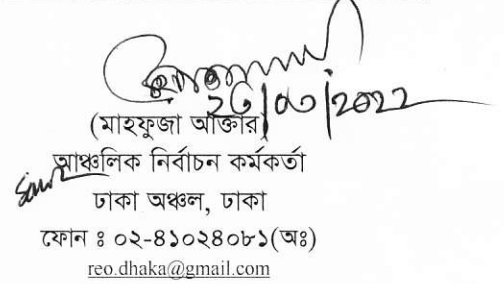 ২৩/০৩/২০২২
(মাহফুজা আক্তার)
আঞ্চলিক নির্বাচন কর্মকর্তা
ঢাকা অঞ্চল, ঢাকা
ফোন ঃ ০২-৪১০২৪০৮১(অঃ)
reo.dhaka@gmail.com